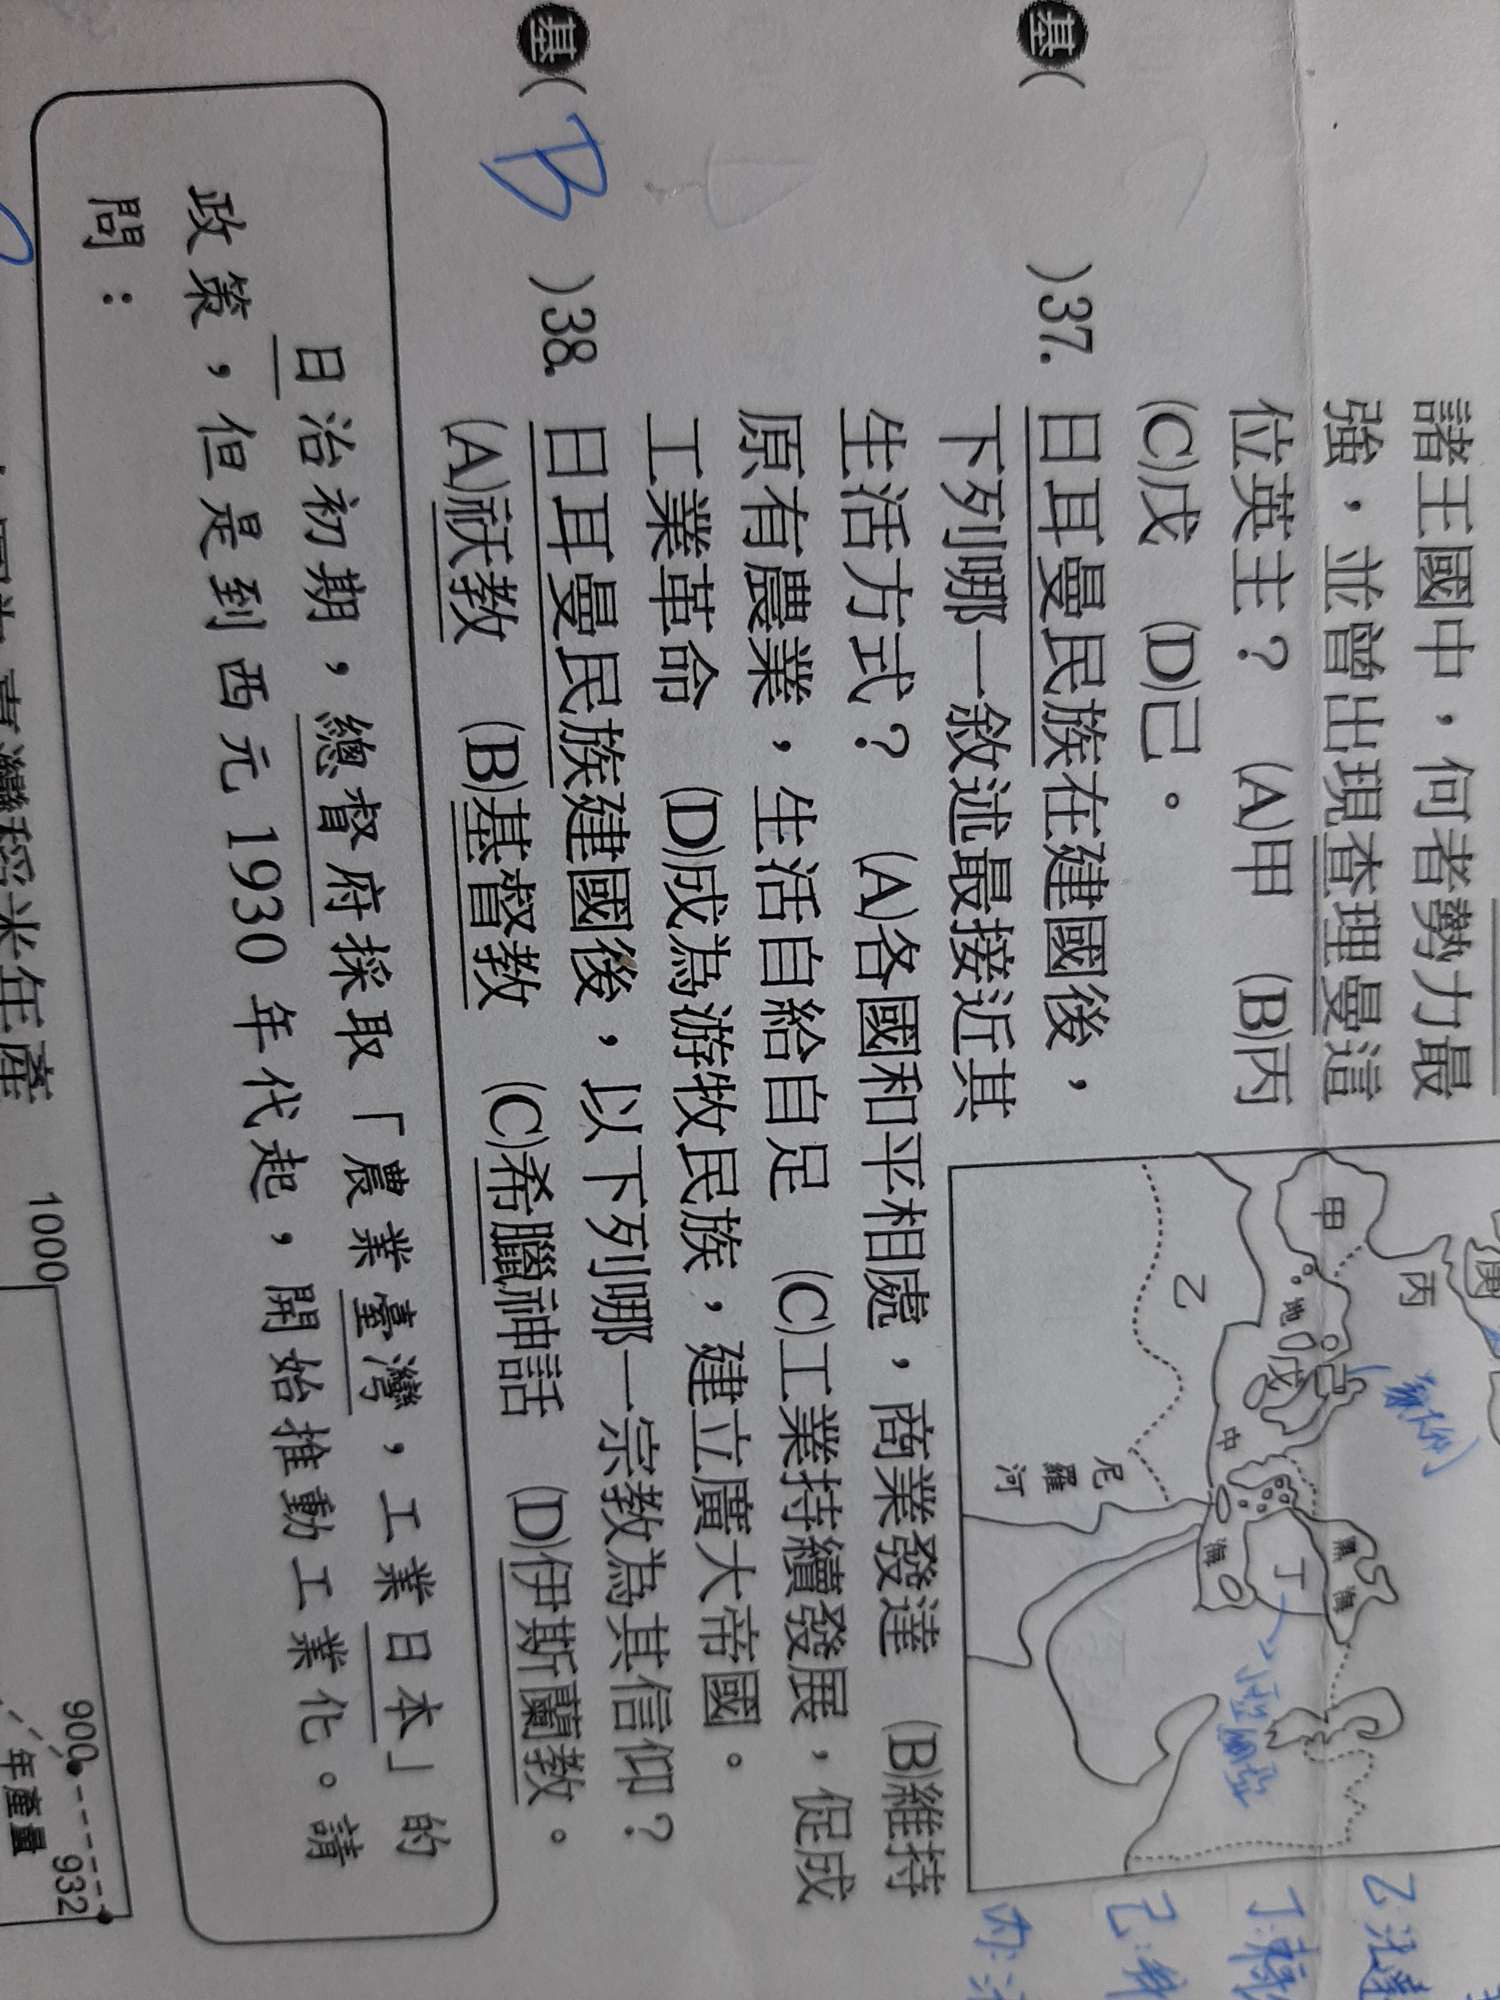 諸王國中,何者勢力最
強,並曾出現查理曼這
位英主? (A)甲 (B)丙
(C)戊 (D)己。
基( )37. 日耳曼民族在建國後,
下列哪一敘述最接近其
生活方式? (A)各國和平相處,商業發達 (B)維持
原有農業,生活自給自足 (C)工業持續發展,促成
工業革命 (D)成為游牧民族,建立廣大帝國。
基( B )38. 日耳曼民族建國後,以下列哪一宗教為其信仰?
(A)祆教 (B)基督教 (C)希臘神話 (D)伊斯蘭教。
庚
丙
甲
乙
地
戊
己
中
海
丁
黑海
尼羅河
小亞細亞
日治初期,總督府採取「農業臺灣,工業日本」的
政策,但是到西元 1930 年代起,開始推動工業化。請
問:
臺灣稻米年產
1000
900
932
年產量